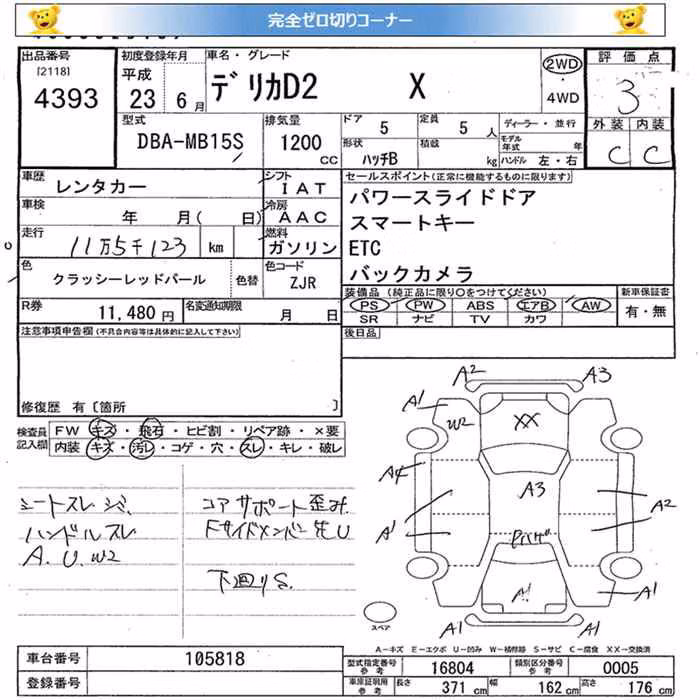 完全ゼロ切りコーナー
出品番号
[2118]
4393
初度登録年月
平成
23 6月
車名・グレード
デリカD2 X
2WD
・
4WD
評価点
3
外装 内装
C C
型式
DBA-MB15S
排気量
1200
CC
ドア 5
定員 5 人
形状
ハッチB
積載
kg
ディーラー・並行
モデル年式 年
ハンドル 左・右
車歴
レンタカー
シフト
IAT
車検
年 月( 日)
冷房
AAC
走行
11万5千123 km
燃料
ガソリン
色
クラッシーレッドパール
色替
色コード
ZJR
R券
11,480 円
名変通知期限
月 日
セールスポイント(正常に機能するものに限ります)
パワースライドドア
スマートキー
ETC
バックカメラ
装備品(純正品に限り○をつけてください)
PS PW ABS エアB AW
SR ナビ TV カワ
新車保証書
有・無
後日品
注意事項申告欄(不具合内容等は具体的に記入して下さい)
修復歴 有〔箇所 〕
検査員
記入欄
FW キズ・飛石・ヒビ割・リペア跡・×要
内装 キズ・汚レ・コゲ・穴・スレ・キレ・破レ
シートスレ シミ
ハンドルスレ
A.U.W2
コアサポート歪み
Fサイドメンバー先U
下廻りS.
A2 A3
A1
W2
XX
A4
A3
A2
A1
A1
A1
A1 A1
スペア
A-キズ E-エクボ U-凹み W-補修跡 S-サビ C-腐食 XX-交換済
車台番号
105818
登録番号
型式指定番号
参考
16804
類別区分番号
参考
0005
車庫証明用
参考
長さ 371 cm
幅 162 cm
高さ 176 cm